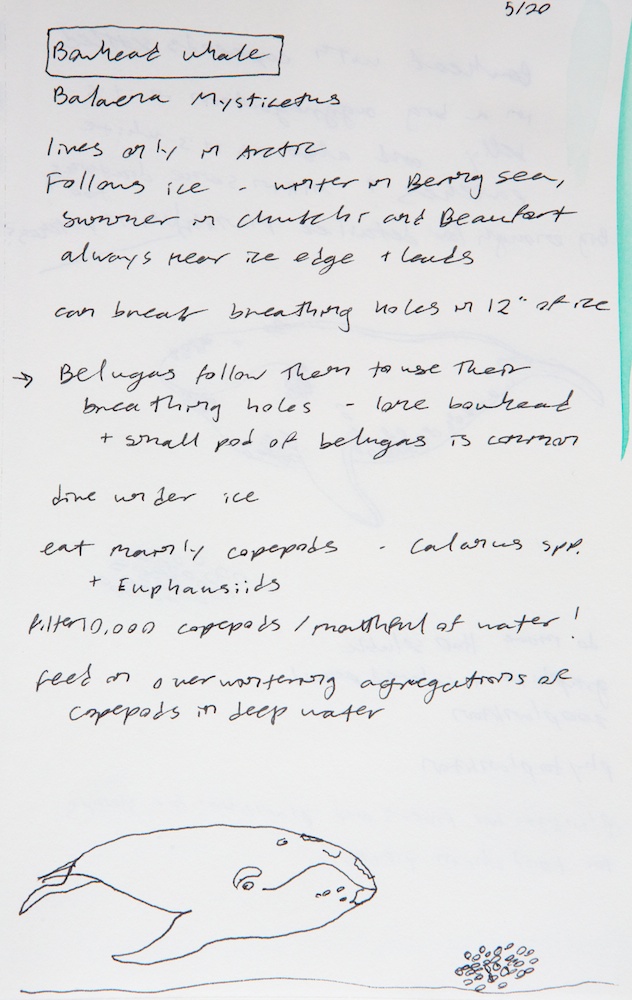 5/20
Bowhead whale
Balaena Mysticetus
lives only in Arctic
Follows ice - winter in Bering sea,
summer in chukchi and Beaufort
always near ice edge + leads
can break breathing holes in 12" of ice
→ Belugas follow them to use their
breathing holes - lone bowhead
+ small pod of belugas is common
dive under ice
eat mainly copepods - Calanus spp.
+ Euphausiids
filter 10,000 copepods / mouthful of water!
feed on overwintering aggregations of
copepods in deep water